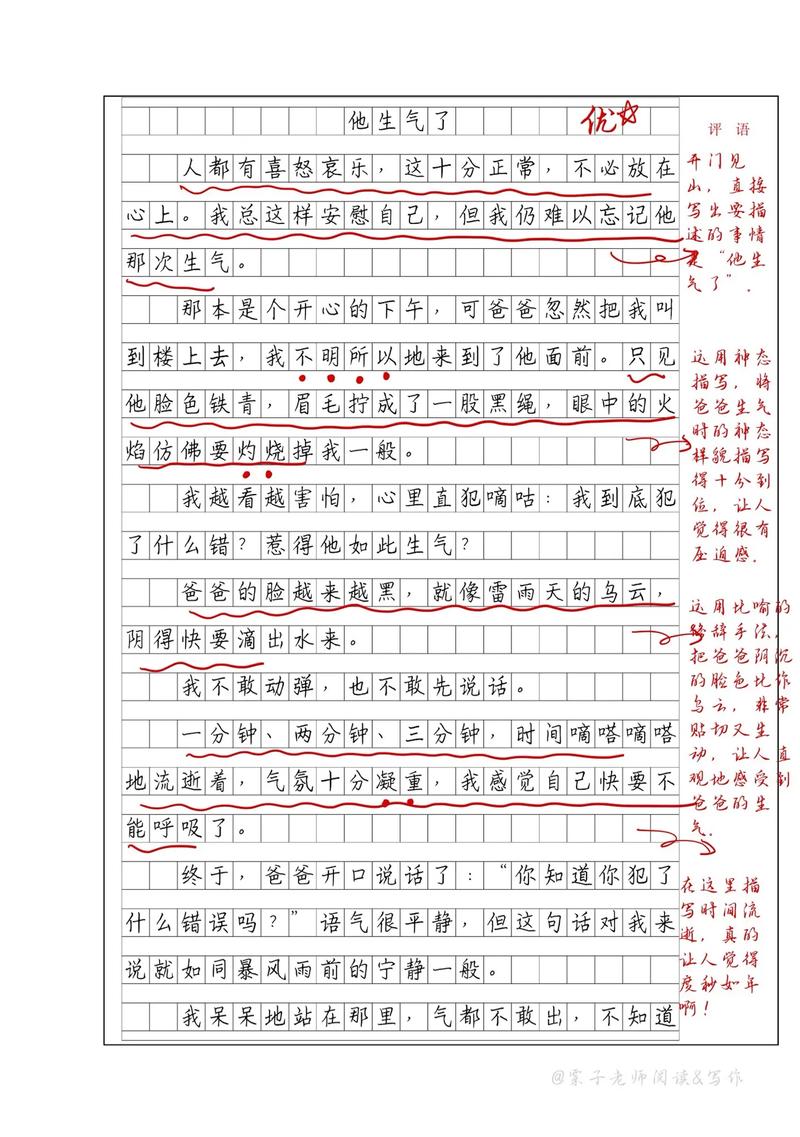 他生气了
优
评语
人都有喜怒哀乐，这十分正常，不必放在
心上。我总这样安慰自己，但我仍难以忘记他
那次生气。
那本是个开心的下午，可爸爸忽然把我叫
到楼上去，我不明所以地来到了他面前。只见
他脸色铁青，眉毛拧成了一股黑绳，眼中的火
焰仿佛要灼烧掉我一般。
我越看越害怕，心里直犯嘀咕：我到底犯
了什么错？惹得他如此生气？
爸爸的脸越来越黑，就像雷雨天的乌云，
阴得快要滴出水来。
我不敢动弹，也不敢先说话。
一分钟、两分钟、三分钟，时间嘀嗒嘀嗒
地流逝着，气氛十分凝重，我感觉自己快要不
能呼吸了。
终于，爸爸开口说话了：“你知道你犯了
什么错误吗？”语气很平静，但这句话对我来
说就如同暴风雨前的宁静一般。
我呆呆地站在那里，气都不敢出，不知道
开门见
山，直接
写出要描
述的事情
是“他生
气了”.
这用神态
描写，将
爸爸生气
时的神态
样貌描写
得十分到
位，让人
觉得很有
压迫感.
这用比喻的
修辞手法，
把爸爸阴沉
的脸色比作
乌云，非常
贴切又生
动，让人直
观地感受到
爸爸的生
气.
在这里描
写时间流
逝，真的
让人觉得
度秒如年
啊！
@棠子老师阅读&写作